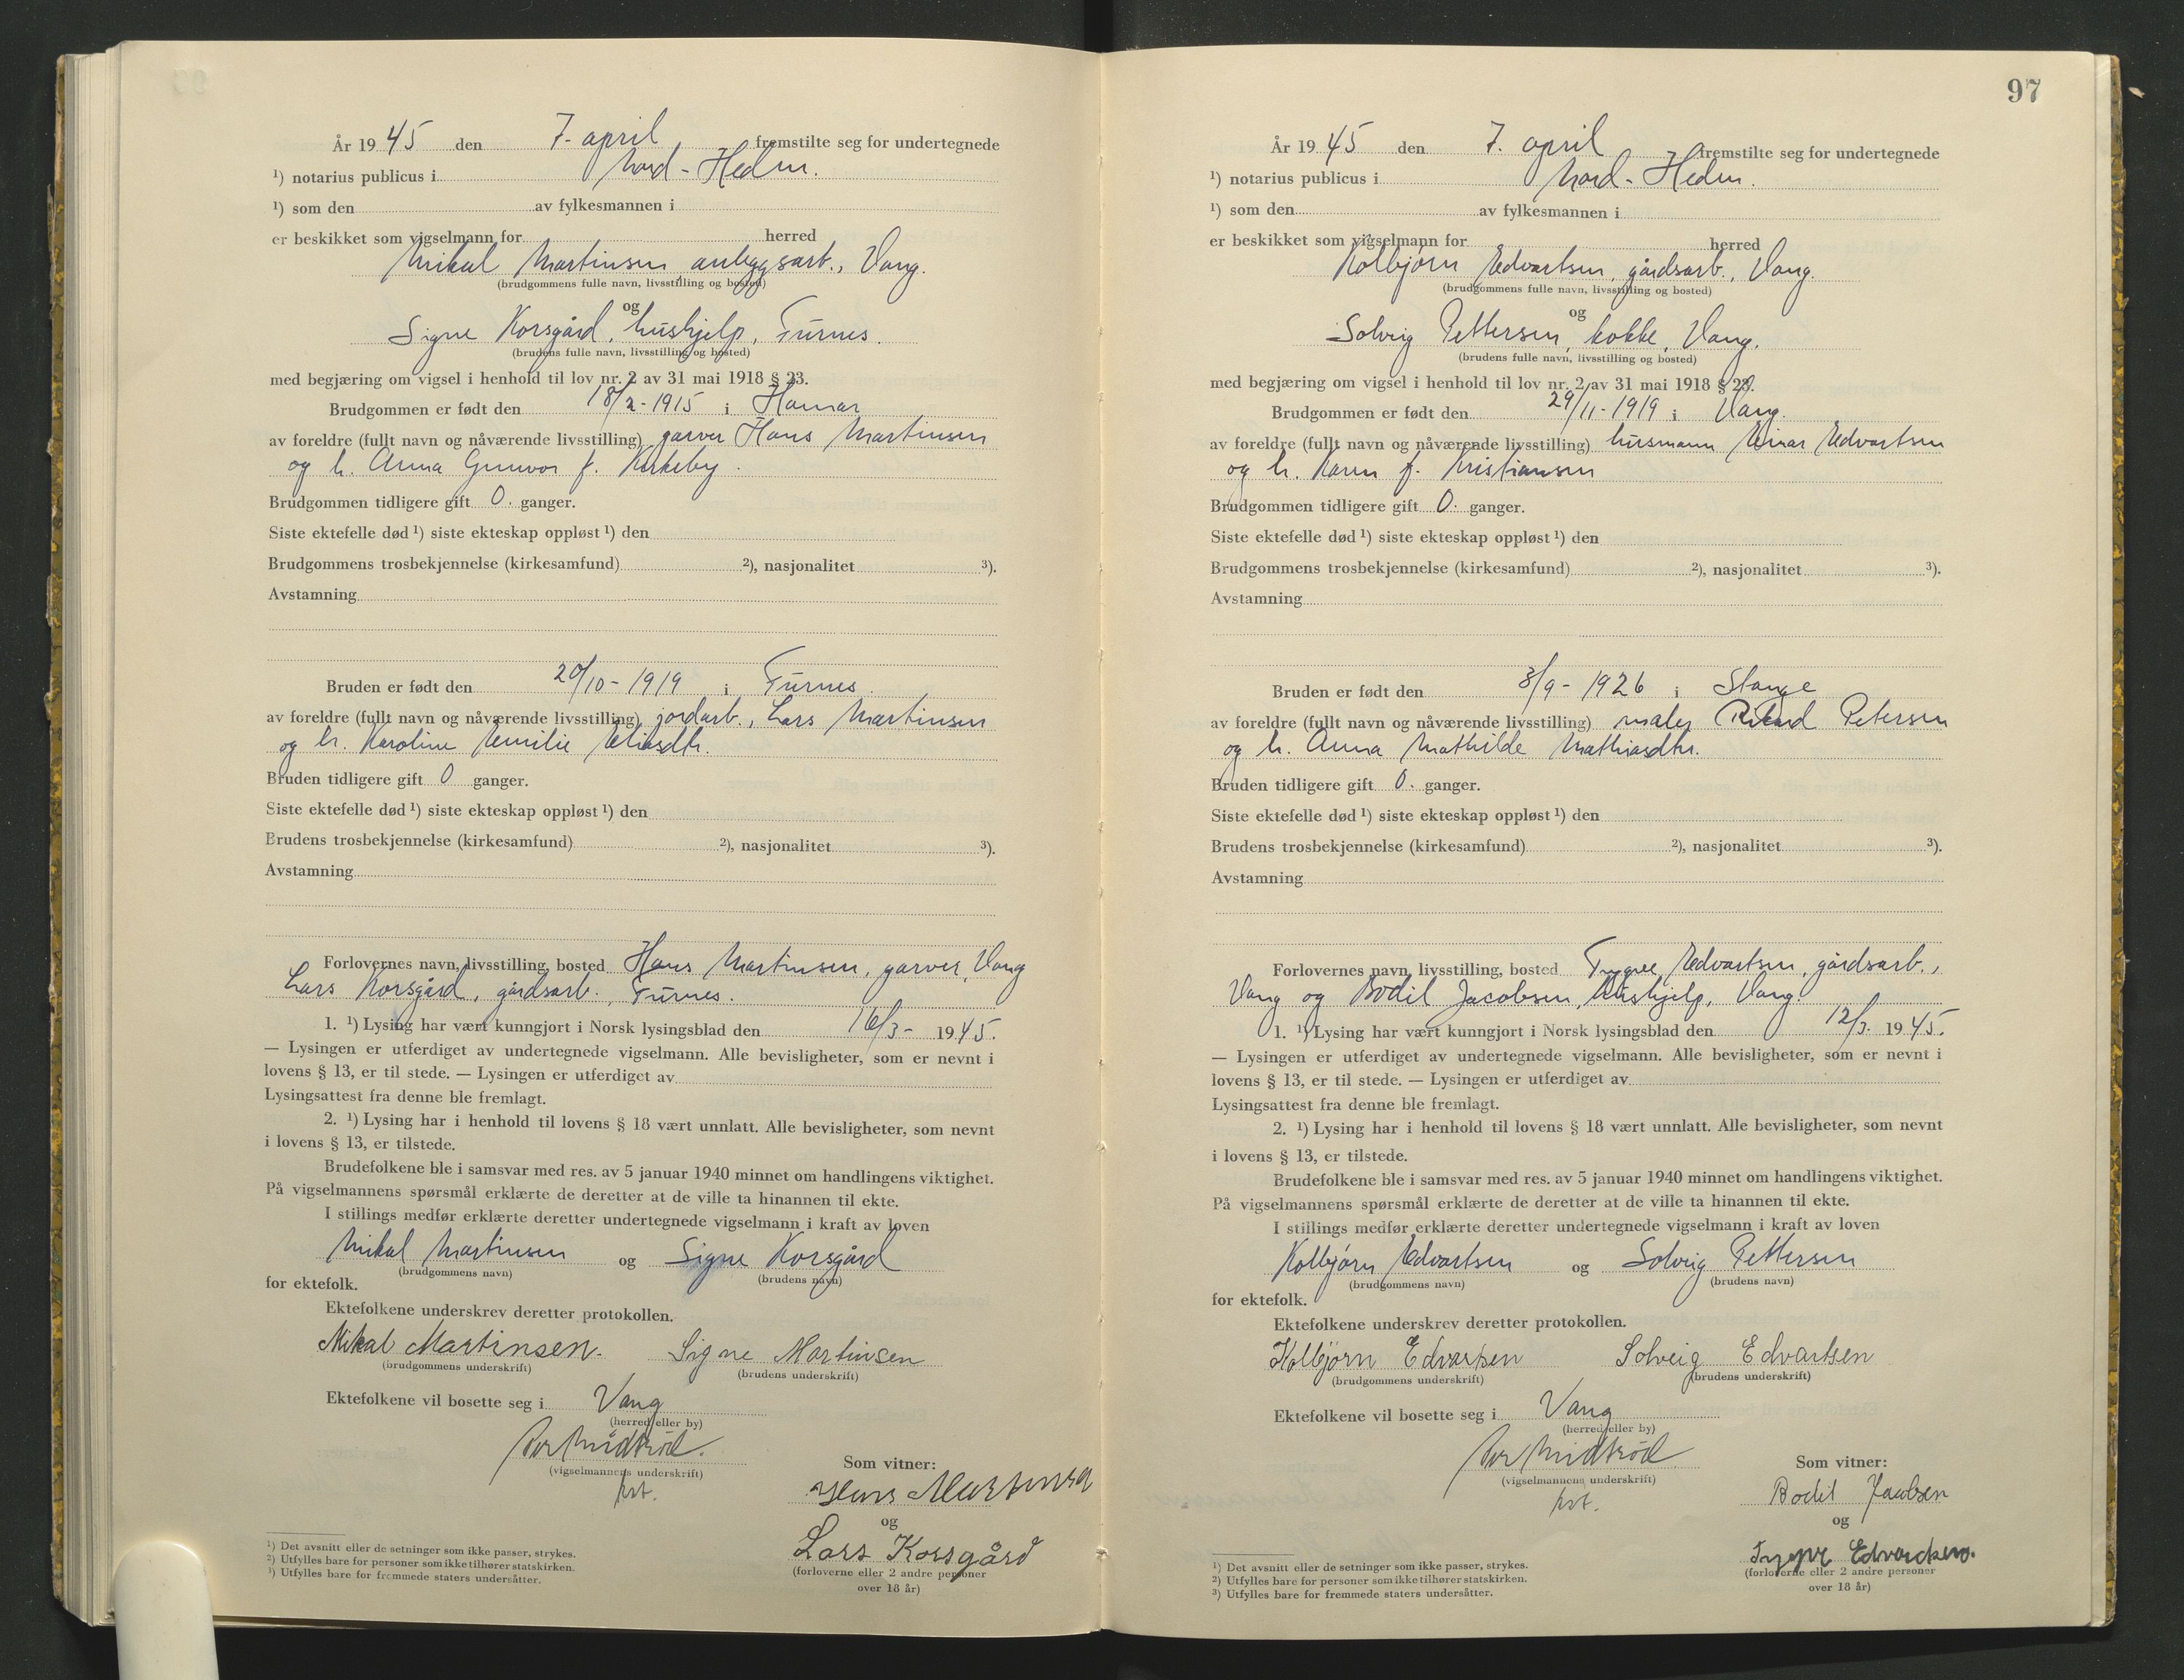 År 19 45 den 7. april fremstilte seg for undertegnede
¹) notarius publicus i Nord-Hedm.
¹) som den av fylkesmannen i
er beskikket som vigselmann for herred
Mikal Martinsen, anleggsarb., Vang.
(brudgommens fulle navn, livsstilling og bosted)
og
Signe Korsgård, hushjelp, Furnes.
(brudens fulle navn, livsstilling og bosted)
med begjæring om vigsel i henhold til lov nr. 2 av 31 mai 1918 § 23.
Brudgommen er født den 18/2-1915 i Hamar
av foreldre (fullt navn og nåværende livsstilling) garver Hans Martinsen
og h. Anna Gunvor f. Kirkeby.
Brudgommen tidligere gift 0. ganger.
Siste ektefelle død ¹) siste ekteskap oppløst ¹) den
Brudgommens trosbekjennelse (kirkesamfund) ²), nasjonalitet ³).
Avstamning
Bruden er født den 20/10-1919 i Furnes.
av foreldre (fullt navn og nåværende livsstilling) jordarb., Lars Martinsen
og h. Karoline Emilie Eliasdtr.
Bruden tidligere gift 0 ganger.
Siste ektefelle død ¹) siste ekteskap oppløst ¹) den
Brudens trosbekjennelse (kirkesamfund) ²), nasjonalitet ³).
Avstamning
Forlovernes navn, livsstilling, bosted Hans Martinsen, garver, Vang
Lars Korsgård, gårdsarb., Furnes.
1. ¹) Lysing har vært kunngjort i Norsk lysingsblad den 16/3- 19 45.
— Lysingen er utferdiget av undertegnede vigselmann. Alle bevisligheter, som er nevnt i
lovens § 13, er til stede. — Lysingen er utferdiget av
Lysingsattest fra denne ble fremlagt.
2. ¹) Lysing har i henhold til lovens § 18 vært unnlatt. Alle bevisligheter, som nevnt
i lovens § 13, er tilstede.
Brudefolkene ble i samsvar med res. av 5 januar 1940 minnet om handlingens viktighet.
På vigselmannens spørsmål erklærte de deretter at de ville ta hinannen til ekte.
I stillings medfør erklærte deretter undertegnede vigselmann i kraft av loven
Mikal Martinsen og Signe Korsgård
(brudgommens navn) (brudens navn)
for ektefolk.
Ektefolkene underskrev deretter protokollen.
Mikal Martinsen. Signe Martinsen
(brudgommens underskrift) (brudens underskrift)
Ektefolkene vil bosette seg i Vang
(herred eller by)
Per Midtrød.
(vigselmannens underskrift)
kst.
Som vitner:
Hans Martinsen
og
Lars Korsgård
(forloverne eller 2 andre personer
over 18 år)
¹) Det avsnitt eller de setninger som ikke passer, strykes.
²) Utfylles bare for personer som ikke tilhører statskirken.
³) Utfylles bare for fremmede staters undersåtter.
97
År 19 45 den 7. april fremstilte seg for undertegnede
¹) notarius publicus i Nord-Hedm.
¹) som den av fylkesmannen i
er beskikket som vigselmann for herred
Kolbjørn Edvartsen, gårdsarb., Vang.
(brudgommens fulle navn, livsstilling og bosted)
og
Solvig Pettersen, kokke, Vang.
(brudens fulle navn, livsstilling og bosted)
med begjæring om vigsel i henhold til lov nr. 2 av 31 mai 1918 § 23.
Brudgommen er født den 29/11-1919 i Vang.
av foreldre (fullt navn og nåværende livsstilling) husmann Einar Edvartsen
og h. Karen f. Kristiansen
Brudgommen tidligere gift 0. ganger.
Siste ektefelle død ¹) siste ekteskap oppløst ¹) den
Brudgommens trosbekjennelse (kirkesamfund) ²), nasjonalitet ³).
Avstamning
Bruden er født den 3/9-1926 i Stange
av foreldre (fullt navn og nåværende livsstilling) maler Rikard Petersen
og h. Anna Mathilde Mathiasdtr.
Bruden tidligere gift 0. ganger.
Siste ektefelle død ¹) siste ekteskap oppløst ¹) den
Brudens trosbekjennelse (kirkesamfund) ²), nasjonalitet ³).
Avstamning
Forlovernes navn, livsstilling, bosted Trygve Edvartsen, gårdsarb.,
Vang og Bodil Jacobsen, hushjelp, Vang.
1. ¹) Lysing har vært kunngjort i Norsk lysingsblad den 12/3. 19 45.
— Lysingen er utferdiget av undertegnede vigselmann. Alle bevisligheter, som er nevnt i
lovens § 13, er til stede. — Lysingen er utferdiget av
Lysingsattest fra denne ble fremlagt.
2. ¹) Lysing har i henhold til lovens § 18 vært unnlatt. Alle bevisligheter, som nevnt
i lovens § 13, er tilstede.
Brudefolkene ble i samsvar med res. av 5 januar 1940 minnet om handlingens viktighet.
På vigselmannens spørsmål erklærte de deretter at de ville ta hinannen til ekte.
I stillings medfør erklærte deretter undertegnede vigselmann i kraft av loven
Kolbjørn Edvartsen og Solvig Pettersen
(brudgommens navn) (brudens navn)
for ektefolk.
Ektefolkene underskrev deretter protokollen.
Kolbjørn Edvartsen Solveig Edvartsen
(brudgommens underskrift) (brudens underskrift)
Ektefolkene vil bosette seg i Vang
(herred eller by)
Per Midtrød
(vigselmannens underskrift)
kst.
Som vitner:
Bodil Jacobsen
og
Trygve Edvardsen.
(forloverne eller 2 andre personer
over 18 år)
¹) Det avsnitt eller de setninger som ikke passer, strykes.
²) Utfylles bare for personer som ikke tilhører statskirken.
³) Utfylles bare for fremmede staters undersåtter.